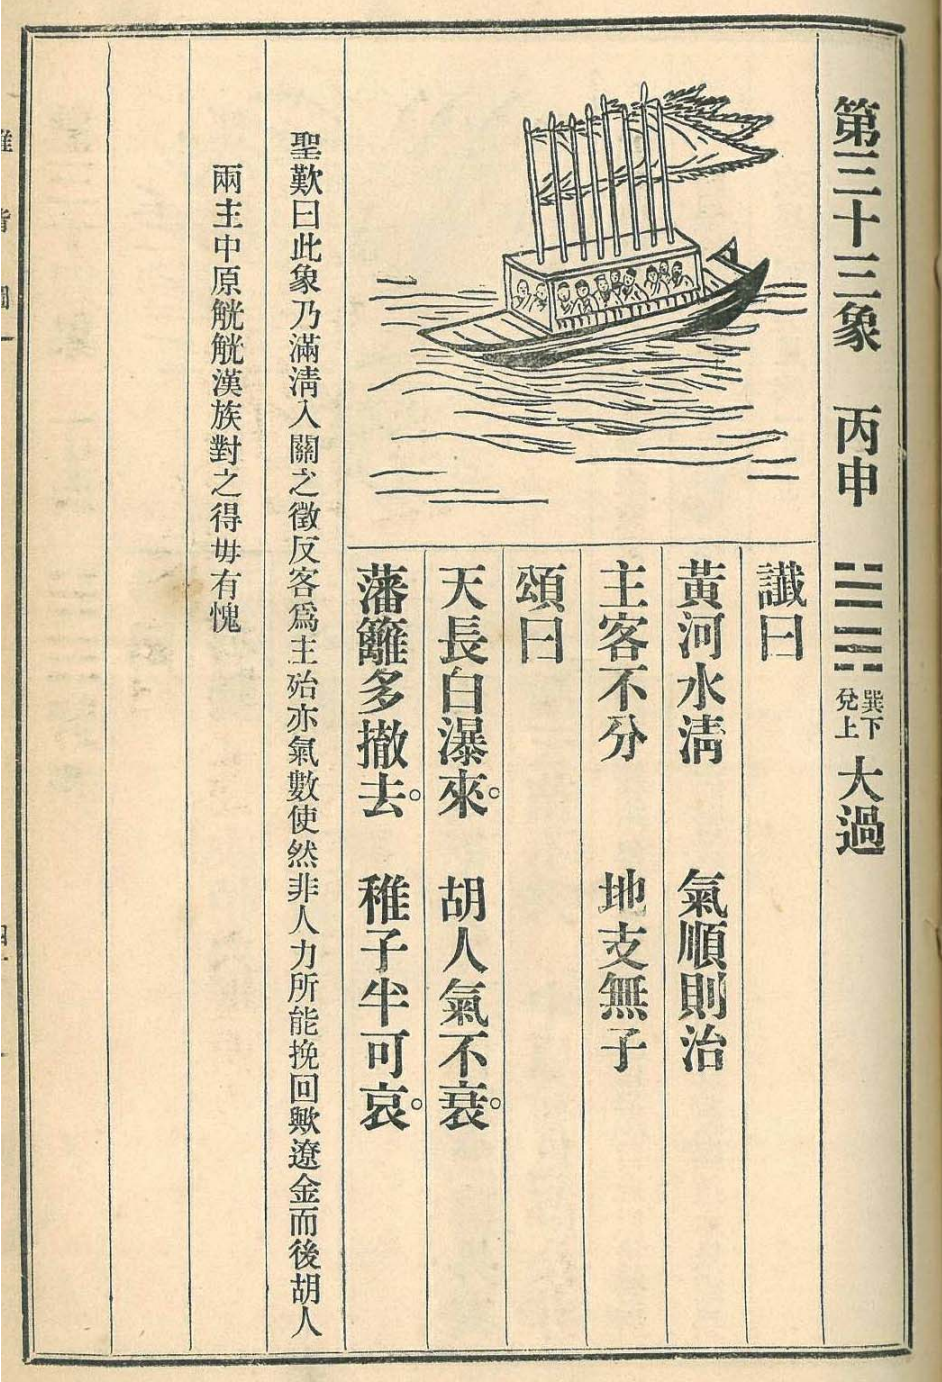 第三十三象 丙申 巽下兌上 大過
讖曰
黃河水淸 氣順則治
主客不分 地支無子
頌曰
天長白瀑來。 胡人氣不衰。
藩籬多撤去。 稚子半可哀。
聖歎曰此象乃滿淸入關之徵反客爲主殆亦氣數使然非人力所能挽回歟遼金而後胡人
兩主中原觥觥漢族對之得毋有愧